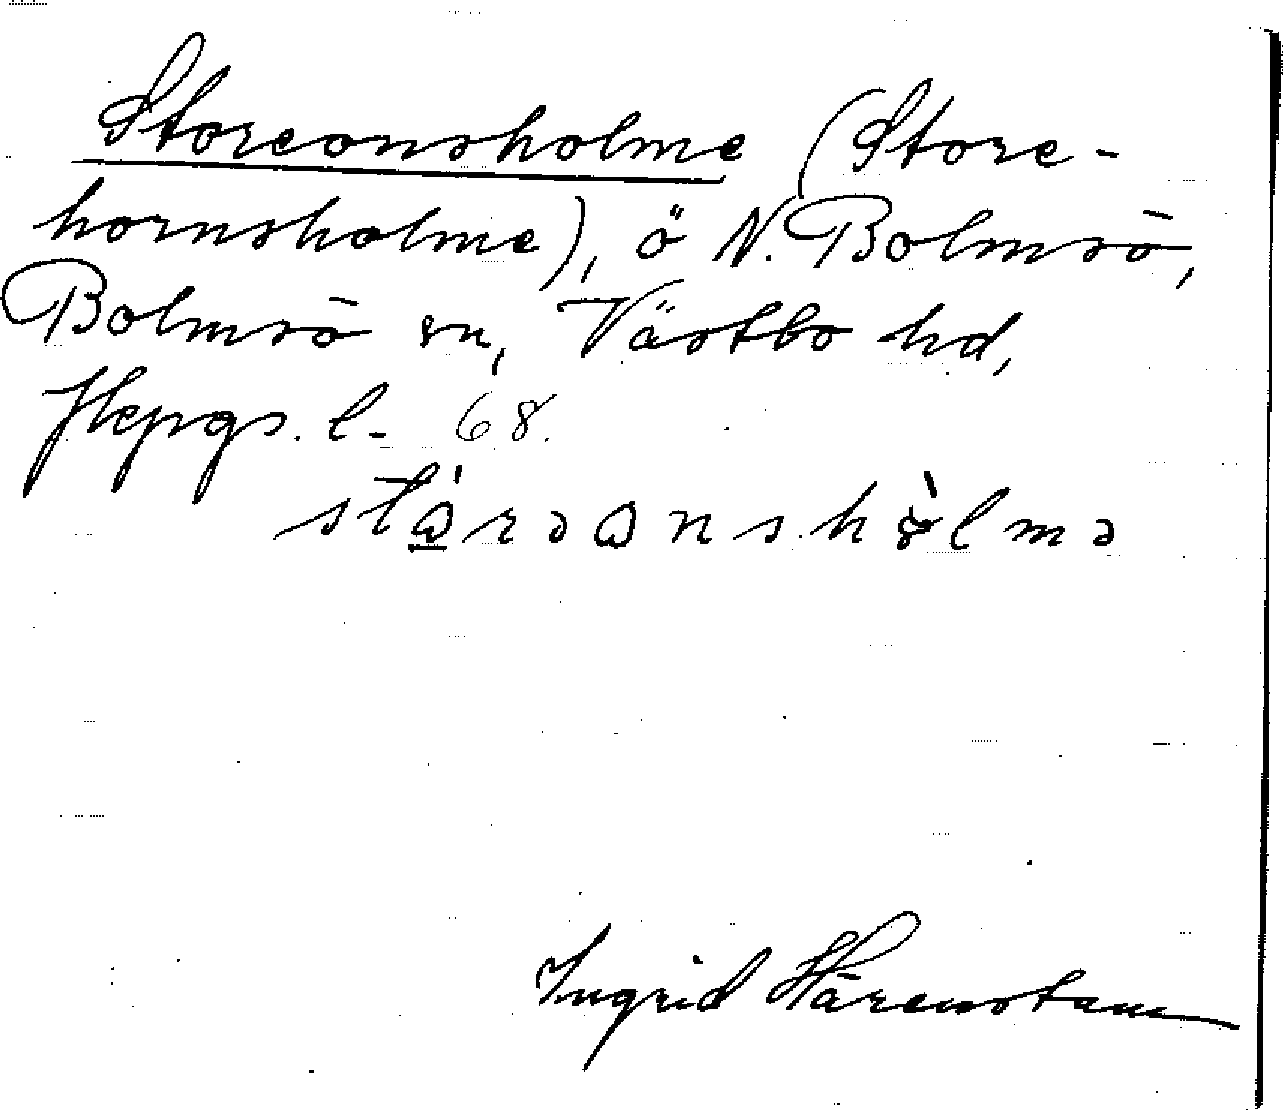 Storeonsholme (Store-
hornsholme), ö N. Bolmsö,
Bolmsö sn, Västbo hd,
Jkpgs. l. 68.
Ingrid Härenstam